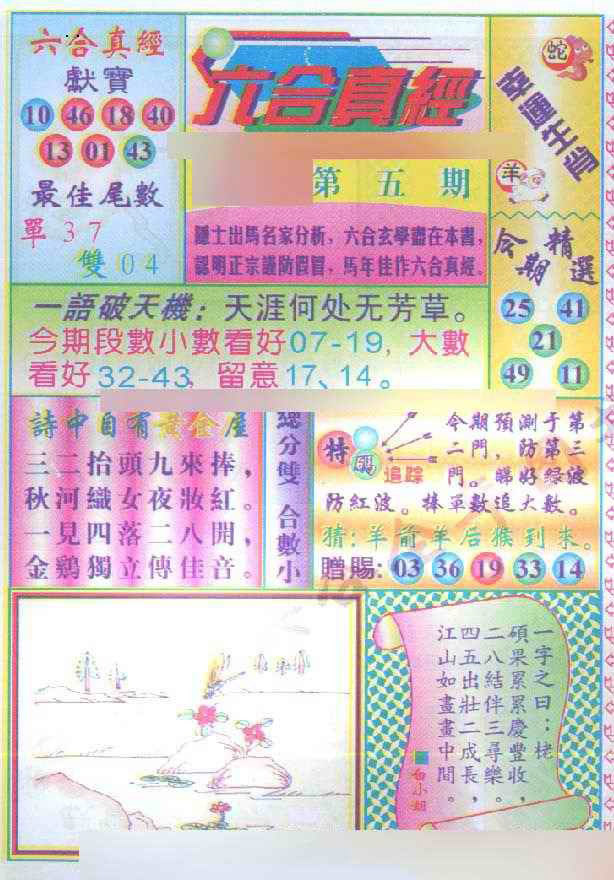 六合真經
獻寶
10 46 18 40
13 01 43
最佳尾數
單 3 7
雙 0 4
六合真經
第五期
隱士出馬名家分析，六合玄學盡在本書，
認明正宗謹防假冒，馬年佳作六合真經。
蛇
幸運生肖
羊
今期精選
25 41
21
49 11
一語破天機：天涯何处无芳草。
今期段數小數看好07-19，大數
看好32-43，留意17、14。
詩中自有黃金屋
三二抬頭九來捧，
秋河織女夜妝紅。
一見四落二八開，
金鷄獨立傳佳音。
總分雙 合數小
特碼
追踪
今期預測于第
二門，防第三
門。睇好绿波
防紅波。捧單數追大數。
猜：羊前羊后猴到来。
贈賜：03 36 19 33 14
一字之曰：栳
碩果累累慶豐收，
二八結伴三尋樂。
四五出壯二成長，
江山如畫畫中間。
白小姐